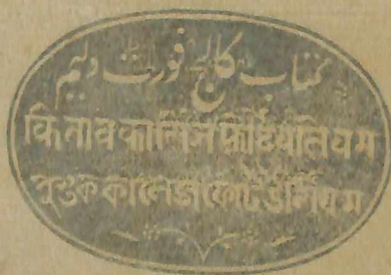 کتاب کالج فورٹ ولیم
किताब कालिज फोर्टउलियम
পুস্তক কালেজ ফোর্ট উলিয়ম